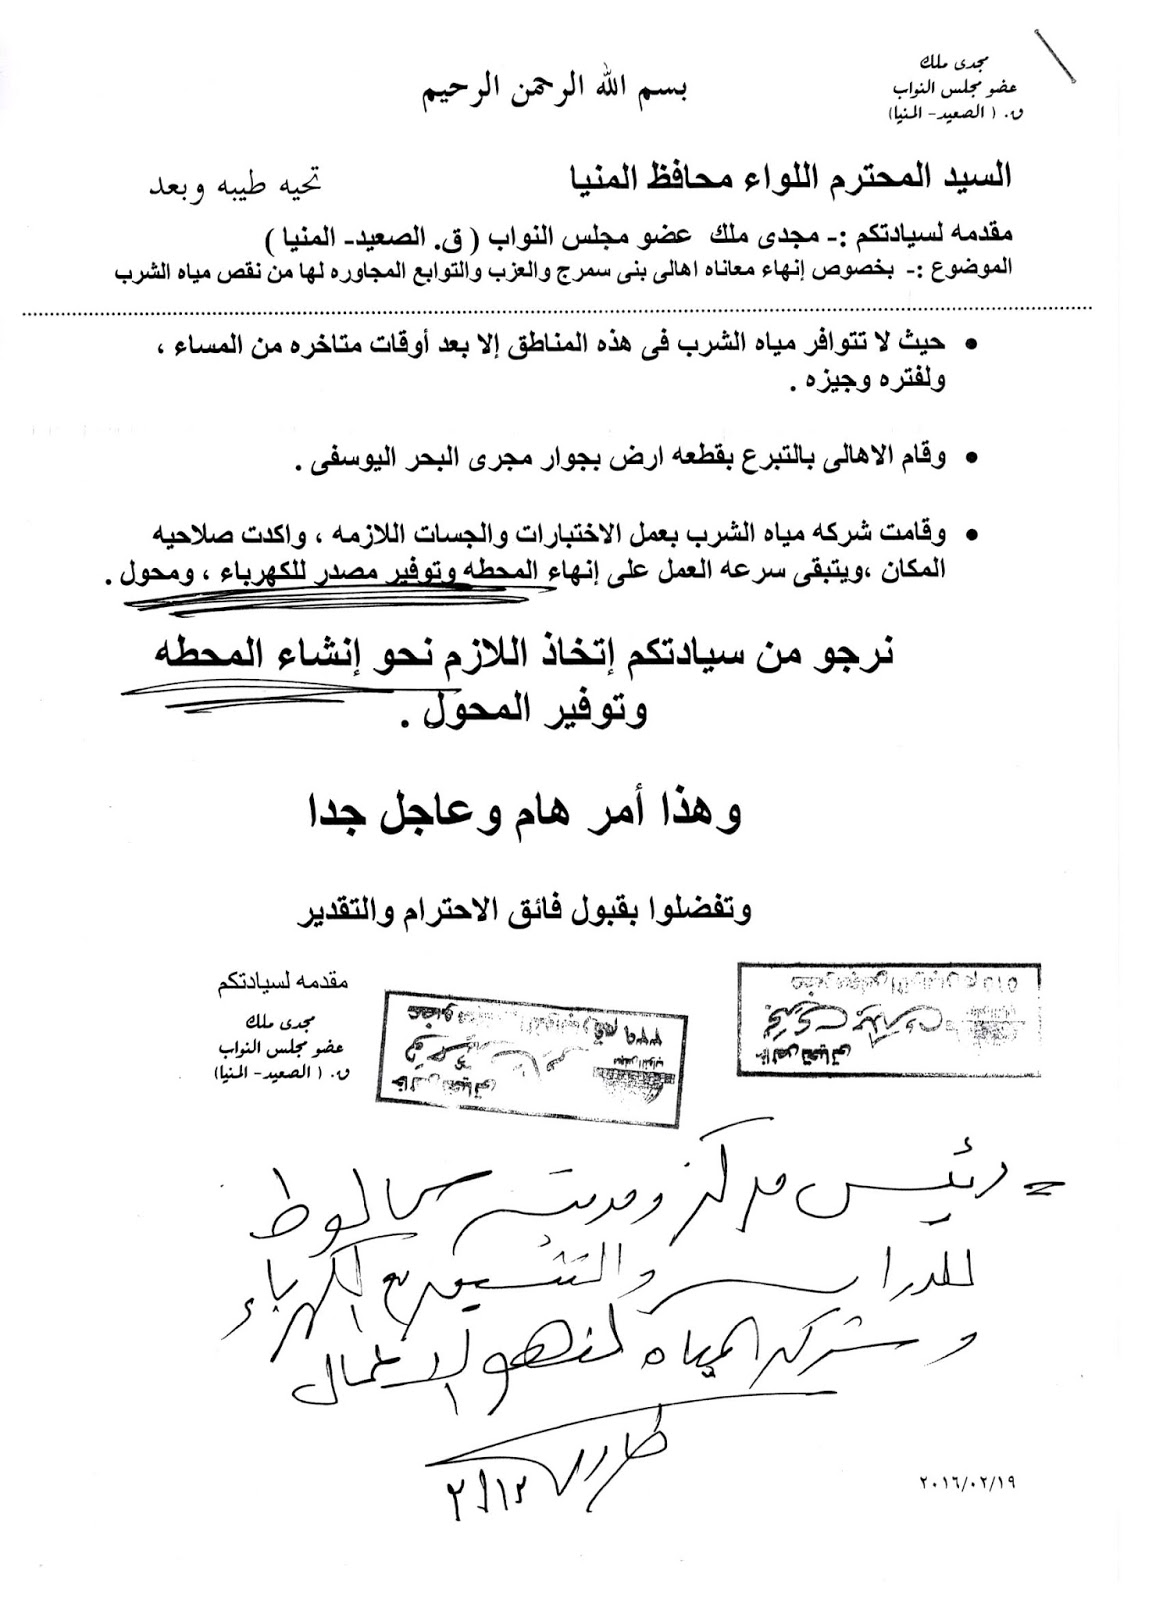 مجدى ملك
عضو مجلس النواب
ق. ( الصعيد- المنيا)
بسم الله الرحمن الرحيم
السيد المحترم اللواء محافظ المنيا تحيه طيبه وبعد
مقدمه لسيادتكم :- مجدى ملك عضو مجلس النواب ( ق. الصعيد- المنيا )
الموضوع :- بخصوص إنهاء معاناه اهالى بنى سمرج والعزب والتوابع المجاوره لها من نقص مياه الشرب
• حيث لا تتوافر مياه الشرب فى هذه المناطق إلا بعد أوقات متاخره من المساء ،
ولفتره وجيزه .
• وقام الاهالى بالتبرع بقطعه ارض بجوار مجرى البحر اليوسفى .
• وقامت شركه مياه الشرب بعمل الاختبارات والجسات اللازمه ، واكدت صلاحيه
المكان ،ويتبقى سرعه العمل على إنهاء المحطه وتوفير مصدر للكهرباء ، ومحول .
نرجو من سيادتكم إتخاذ اللازم نحو إنشاء المحطه
وتوفير المحول .
وهذا أمر هام وعاجل جدا
وتفضلوا بقبول فائق الاحترام والتقدير
مقدمه لسيادتكم
مجدى ملك
عضو مجلس النواب
ق. ( الصعيد- المنيا)
خالص تحياتى
خالص تحياتى
= رئيس مركز ومدينة سمالوط
للدراسة والتنسيق مع الكهرباء
وشركة المياه لنهو الاعمال
طارق
٢٠١٦/٠٢/١٩